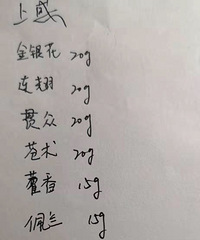 上感
金银花 20g
连翘 20g
贯众 20g
苍术 20g
藿香 15g
佩兰 15g